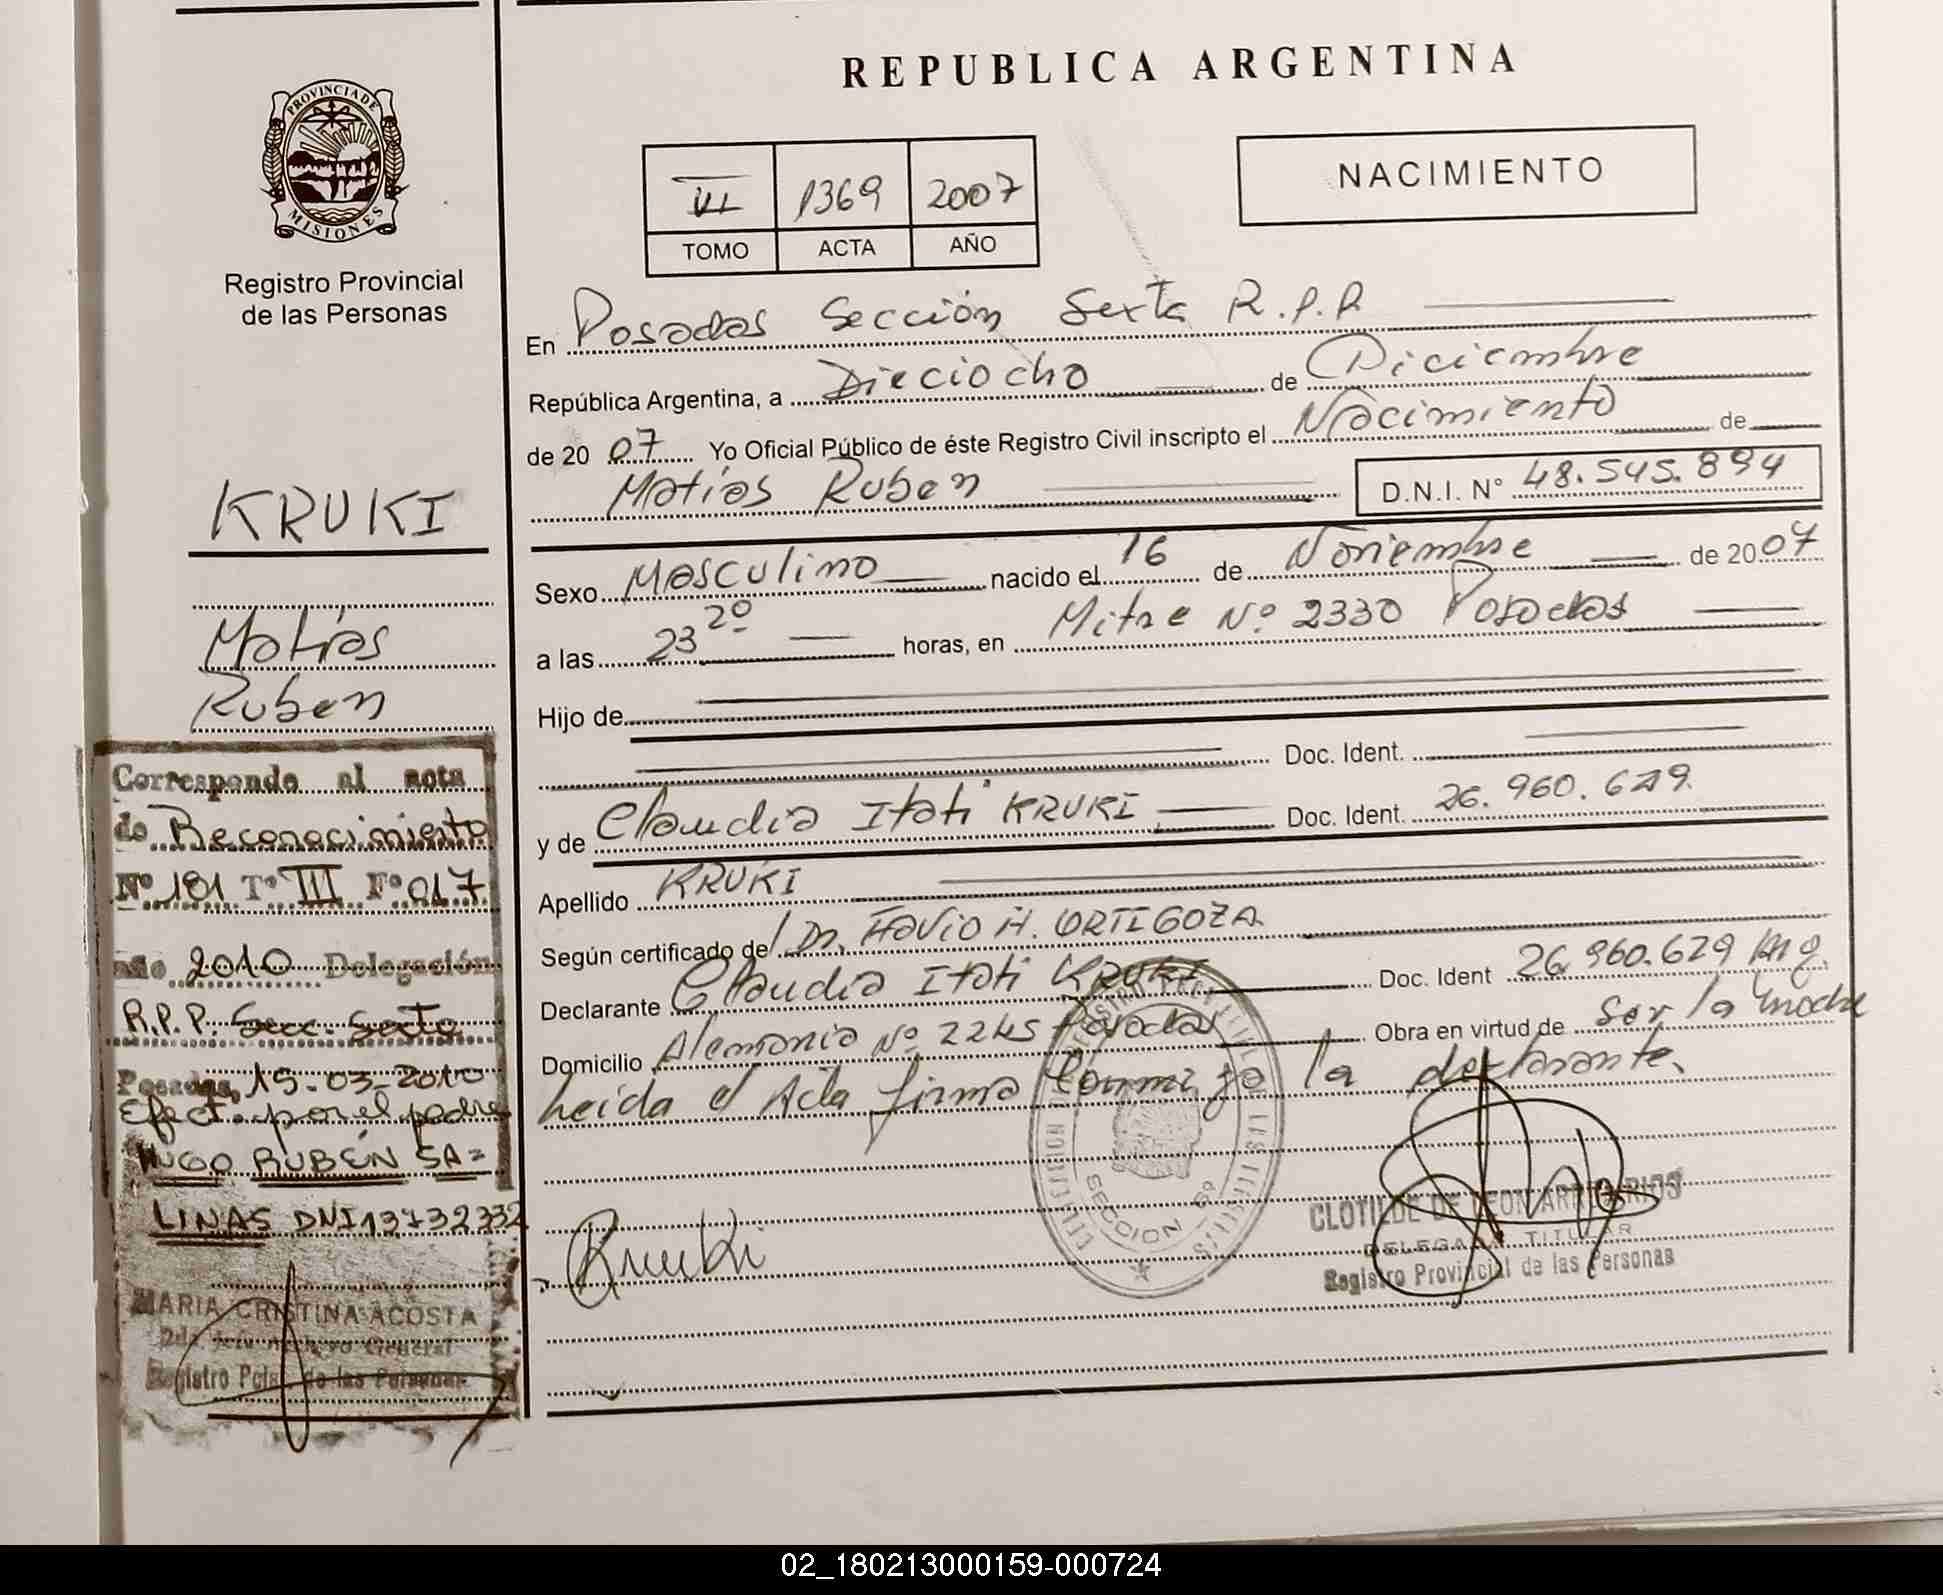 REPUBLICA ARGENTINA
PROVINCIA DE
MISIONES
Registro Provincial
de las Personas
VI 1369 2007
TOMO ACTA AÑO
NACIMIENTO
En Posadas Sección Sexta R.P.P
República Argentina, a Dieciocho de Diciembre
de 2007 Yo Oficial Público de éste Registro Civil inscripto el Nacimiento de
Matías Ruben D.N.I. N° 48.545.894
Sexo Masculino nacido el 16 de Noviembre de 2007
a las 23 20 horas, en Mitre Nº 2330 Posadas
Hijo de
Doc. Ident.
y de Claudia Itatí KRUKI Doc. Ident. 26.960.629
Apellido KRUKI
Según certificado de Dr. Flavio H. ORTIGOZA
Declarante Claudia Itati KRUKI Doc. Ident 26.960.629
Domicilio Alemania Nº 2245 Posadas Obra en virtud de Ser la madre
Leida el Acta firma Conmigo la declarante.
KRUKI
Matías
Ruben
Corresponde al nota
de Reconocimiento
Nº 181 Tº III Fº 017
año 2010 Delegación
R.P.P. Secc. Sexta
Posadas, 15-03-2010
Efect. por el padre
HUGO RUBÉN SA=
LINAS DNI 13732332
MARIA CRISTINA ACOSTA
Archivo General
Registro de las Personas
Kruki
SECCION 6º
CLOTILDE DE LEON
DELEGADA TITULAR
Registro Provincial de las Personas
02_180213000159-000724